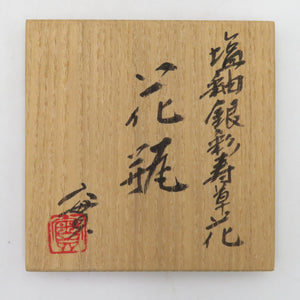 塩釉銀彩寿草花
花瓶